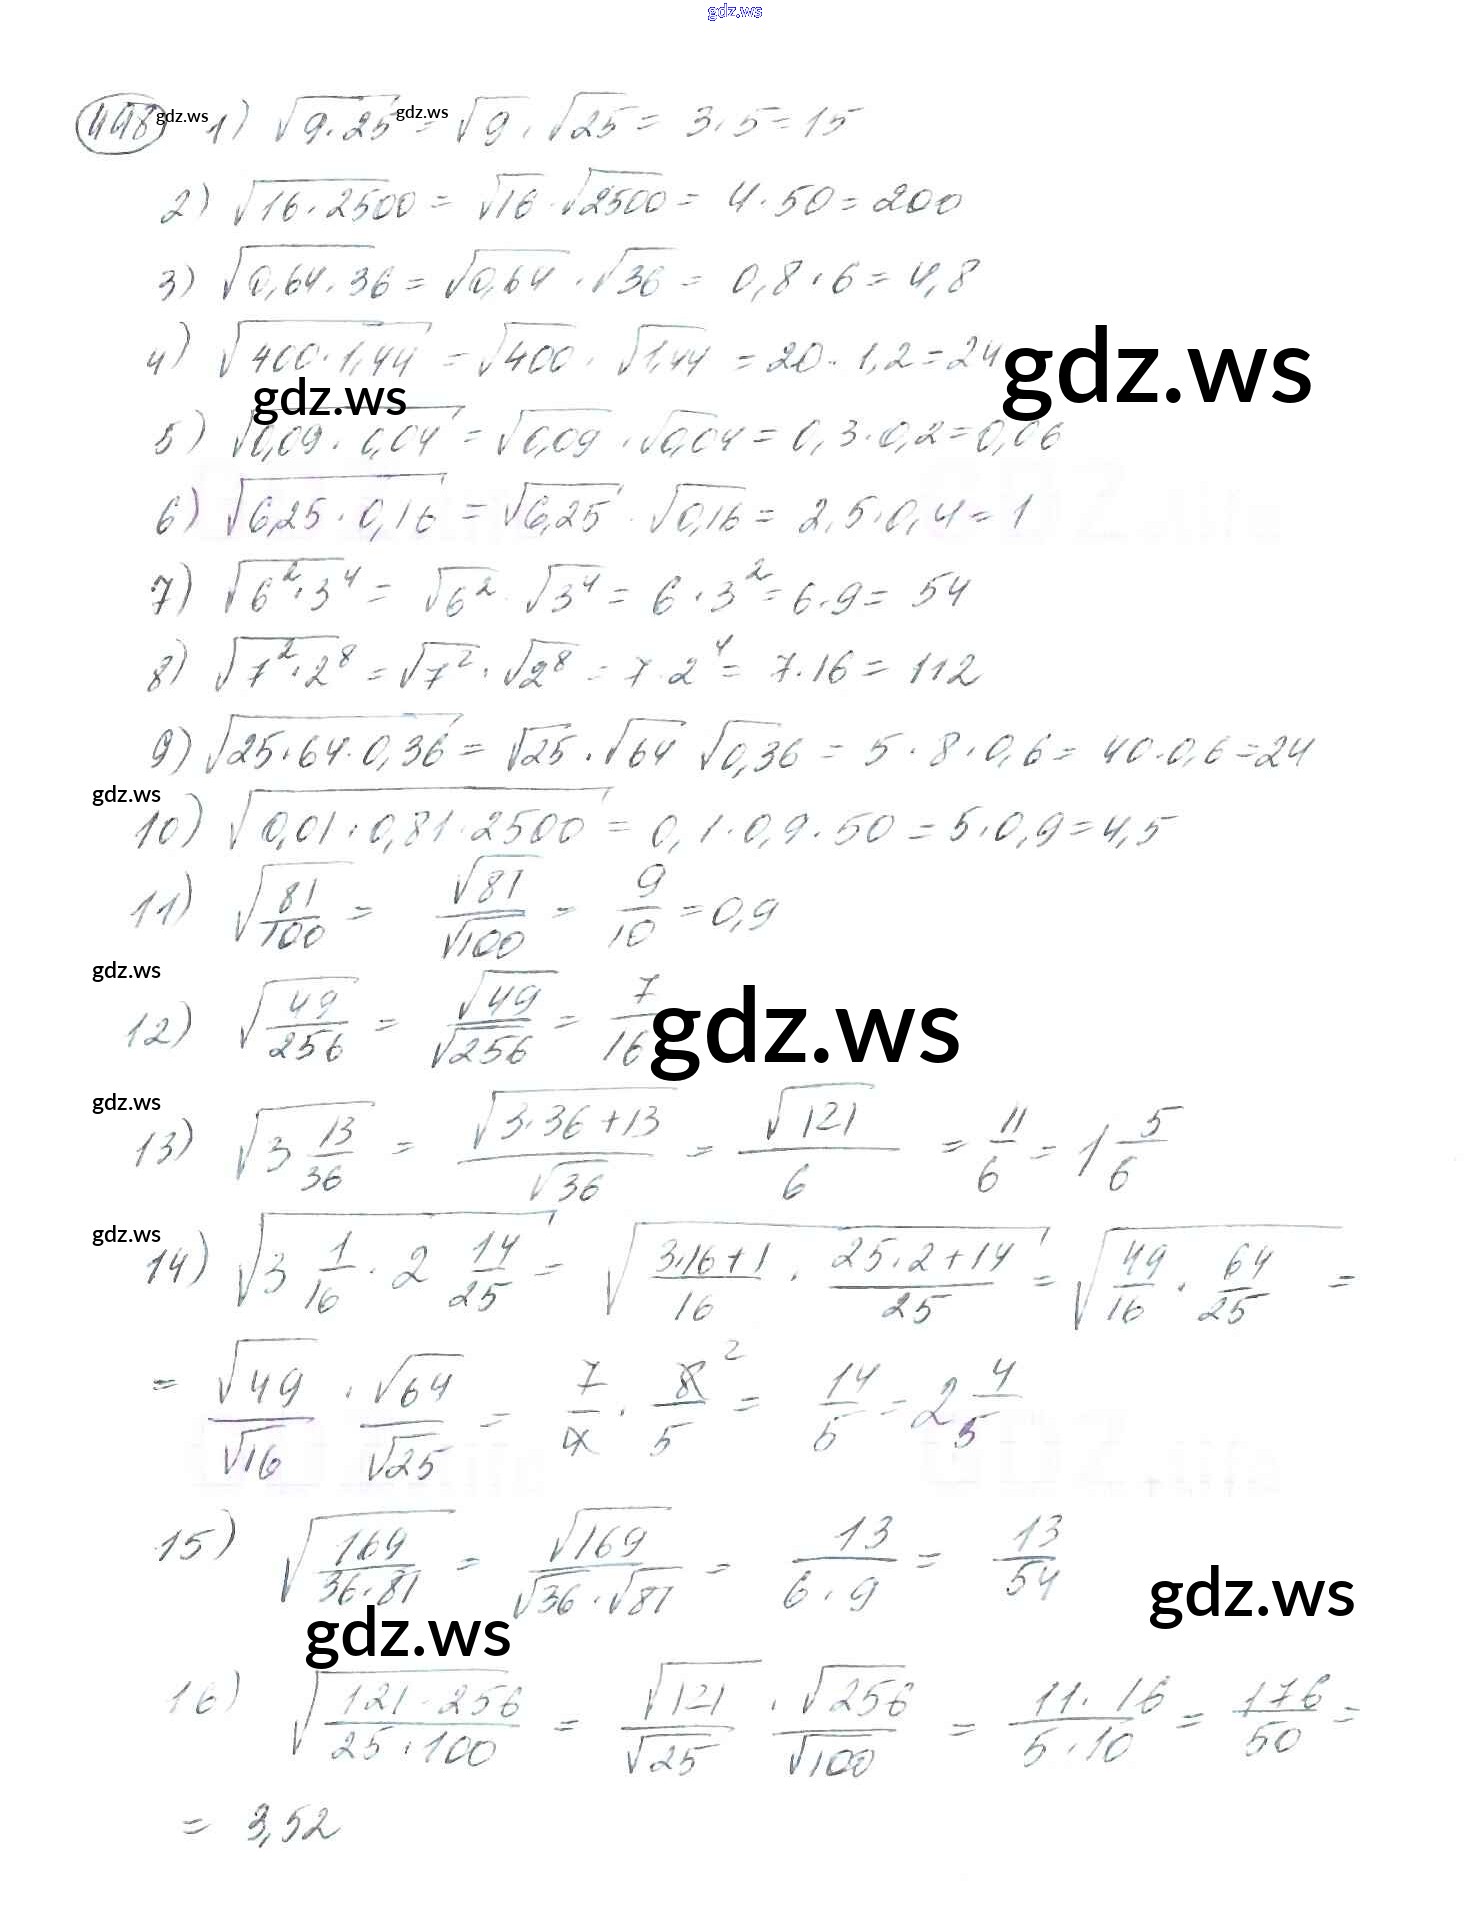 gdz.ws
448 gdz.ws 1) √(9·25) gdz.ws = √9 · √25 = 3·5 = 15
2) √(16·2500) = √16 · √2500 = 4·50 = 200
3) √(0,64·36) = √0,64 · √36 = 0,8·6 = 4,8
4) √(400·1,44) = √400 · √1,44 = 20·1,2 = 24
gdz.ws gdz.ws
5) √(0,09·0,04) = √0,09 · √0,04 = 0,3·0,2 = 0,06
6) √(6,25·0,16) = √6,25 · √0,16 = 2,5·0,4 = 1
7) √(6²·3⁴) = √6² · √3⁴ = 6·3² = 6·9 = 54
8) √(7²·2⁸) = √7² · √2⁸ = 7·2⁴ = 7·16 = 112
9) √(25·64·0,36) = √25 · √64 √0,36 = 5·8·0,6 = 40·0,6 = 24
gdz.ws
10) √(0,01·0,81·2500) = 0,1·0,9·50 = 5·0,9 = 4,5
11) √(81/100) = √81/√100 = 9/10 = 0,9
gdz.ws
12) √(49/256) = √49/√256 = 7/16
gdz.ws
gdz.ws
13) √(3 13/36) = √(3·36+13)/√36 = √121/6 = 11/6 = 1 5/6
gdz.ws
14) √(3 1/16 · 2 14/25) = √((3·16+1)/16 · (25·2+14)/25) = √(49/16 · 64/25) =
= √49/√16 · √64/√25 = 7/4 · 8/5 ² = 14/5 = 2 4/5
15) √(169/(36·81)) = √169/(√36·√81) = 13/(6·9) = 13/54
gdz.ws gdz.ws
16) √((121·256)/(25·100)) = √121/√25 · √256/√100 = (11·16)/(5·10) = 176/50 =
= 3,52